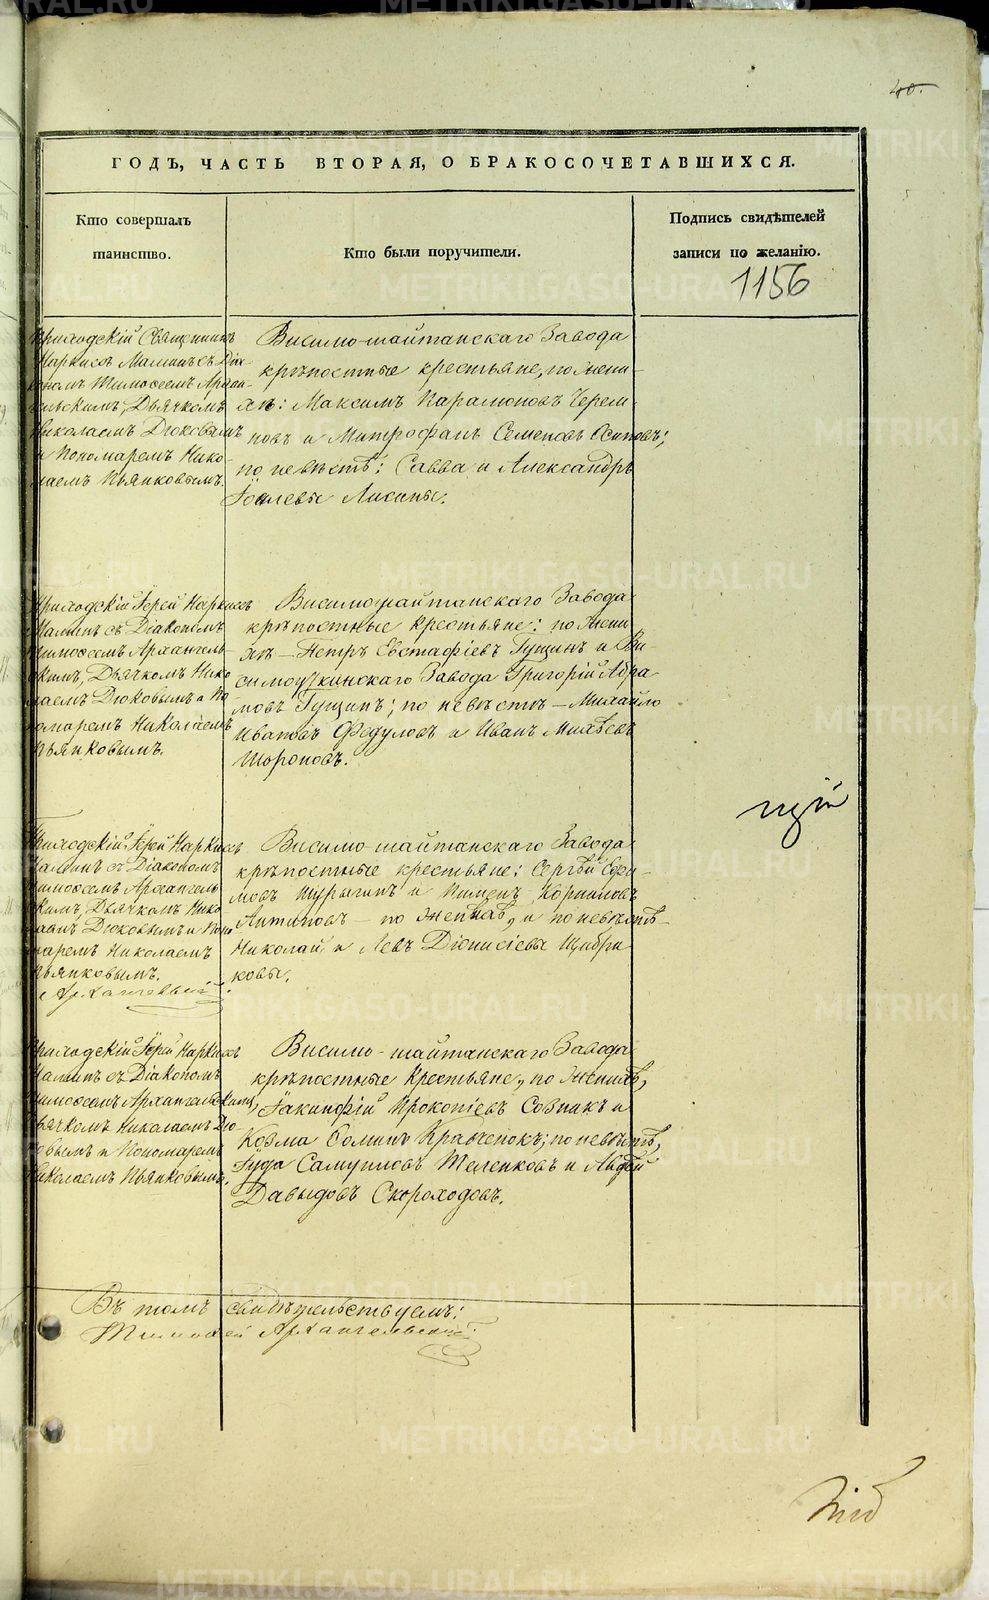 40.
ГОДЪ, ЧАСТЬ ВТОРАЯ, О БРАКОСОЧЕТАВШИХСЯ.
Кто совершалъ
таинство.
Кто были поручители.
Подпись свидѣтелей
записи по желанію.
1156
Приходскій Священникъ
Наркисъ Маминъ съ Діа-
кономъ Тимоѳеемъ Арханг-
гельскимъ, Дьячкомъ
Николаемъ Дюковымъ
и Пономаремъ Нико-
лаемъ Пьянковымъ.
Висимо-шайтанскаго Завода
крѣпостные крестьяне, по жени-
хѣ: Максимъ Парамоновъ Черем-
новъ и Митрофанъ Семеновъ Осиповъ;
по невѣстѣ: Савва и Александръ
Іовлевы Лисины.
Приходскій Іерей Наркисъ
Маминъ съ Діакономъ
Тимоѳеемъ Архангель-
скимъ, Дьячкомъ Нико-
лаемъ Дюковымъ и По-
номаремъ Николаемъ
Пьянковымъ.
Висимошайтанскаго Завода
крѣпостные крестьяне: по жени-
хѣ – Петръ Евстафіевъ Гущинъ и Ви-
симоуткинскаго Завода Григорій Абра-
мовъ Гущинъ; по невѣстѣ – Михайло
Ивановъ Федуловъ и Иванъ Михѣевъ
Шороновъ.
Приходскій Іерей Наркисъ
Маминъ съ Діакономъ
Тимоѳеемъ Архангель-
скимъ, Дьячкомъ Нико-
лаемъ Дюковымъ и Поно-
маремъ Николаемъ
Пьянковымъ.
Архангельскій
Висимо-шайтанскаго Завода
крѣпостные крестьяне: Сергѣй Ефи-
мовъ Шурыгинъ и Пименъ Корниловъ
Антиповъ – по женихѣ, и по невѣстѣ –
Николай и Левъ Діонисіевы Цыбри-
ковы.
Приходскій Іерей Наркисъ
Маминъ съ Діакономъ
Тимоѳеемъ Архангельскимъ,
Дьячкомъ Николаемъ Дю-
ковымъ и Пономаремъ
Николаемъ Пьянковымъ.
Висимо-шайтанскаго Завода
крѣпостные крестьяне, по женихѣ,
Іакинфій Прокопіевъ Совпикъ и
Козма Фоминъ Кравченокъ; по невѣстѣ,
Іуда Самуиловъ Теленковъ и Авдѣй
Давыдовъ Скороходовъ.
Въ томъ свидѣтельствуемъ:
Тимофей Архангельскій.
METRIKI.GASO-URAL.RU